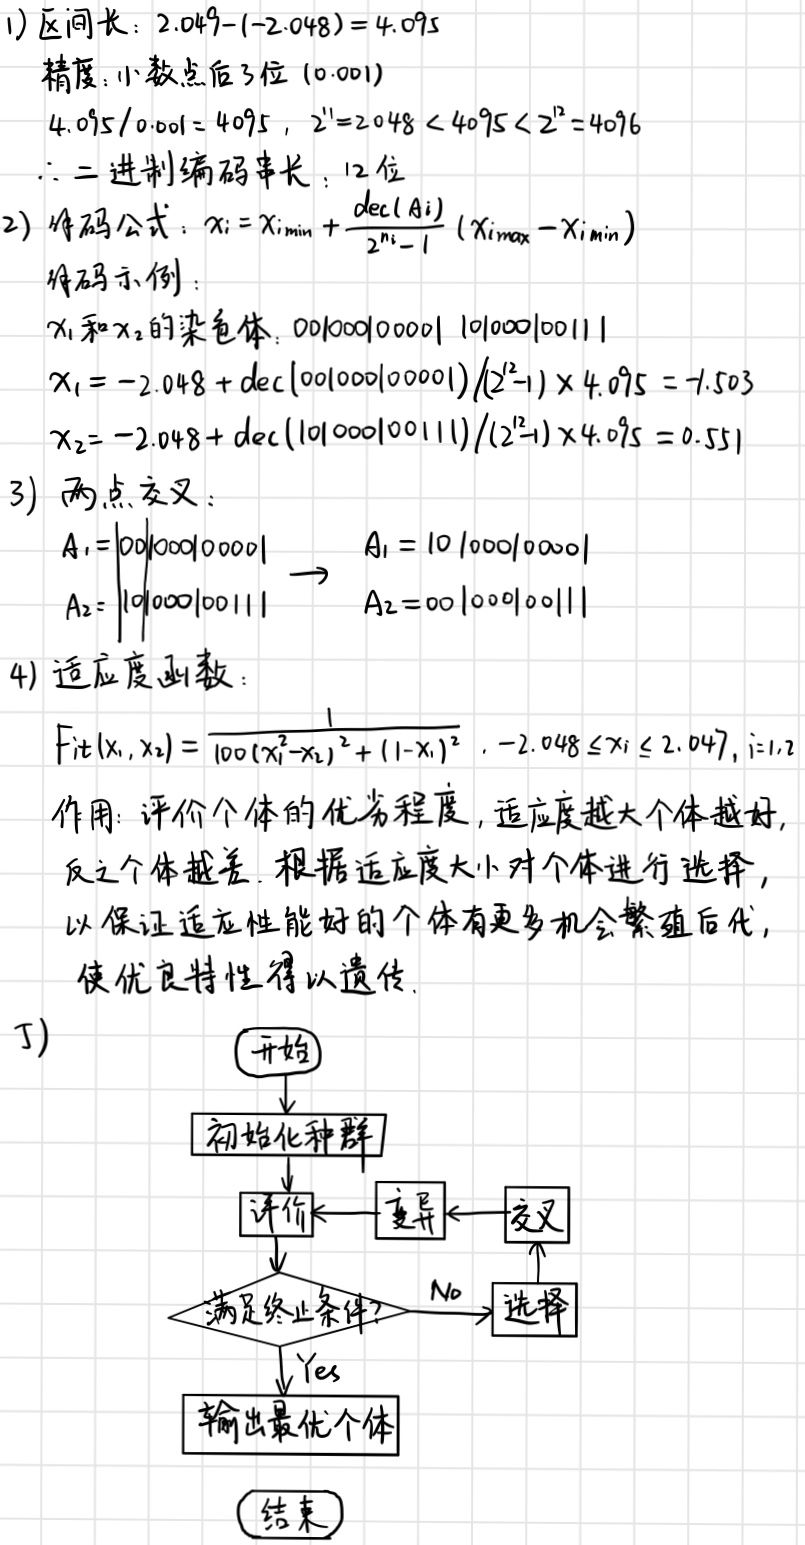 1) 区间长: 2.049-(-2.048) = 4.095
精度: 小数点后3位 (0.001)
4.095/0.001 = 4095 , 2^11=2048 < 4095 < 2^12=4096
∴ 二进制编码串长: 12位
2) 解码公式: xi = ximin + dec(Ai)/(2^ni - 1) (ximax - ximin)
解码示例:
x1和x2的染色体: 001000100001 101000100111
x1 = -2.048 + dec(001000100001)/(2^12-1) × 4.095 = -1.503
x2 = -2.048 + dec(101000100111)/(2^12-1) × 4.095 = 0.551
3) 两点交叉:
A1 = |00|1000100001 → A1 = 101000100001
A2 = |10|1000100111 A2 = 001000100111
4) 适应度函数:
Fit(x1, x2) = 1/(100(x1^2-x2)^2 + (1-x1)^2) , -2.048 ≤ xi ≤ 2.047, i=1,2
作用: 评价个体的优劣程度, 适应度越大个体越好,
反之个体越差. 根据适应度大小对个体进行选择,
以保证适应性能好的个体有更多机会繁殖后代,
使优良特性得以遗传.
5)
开始
初始化种群
评价 变异 交叉
满足终止条件? No 选择
Yes
输出最优个体
结束